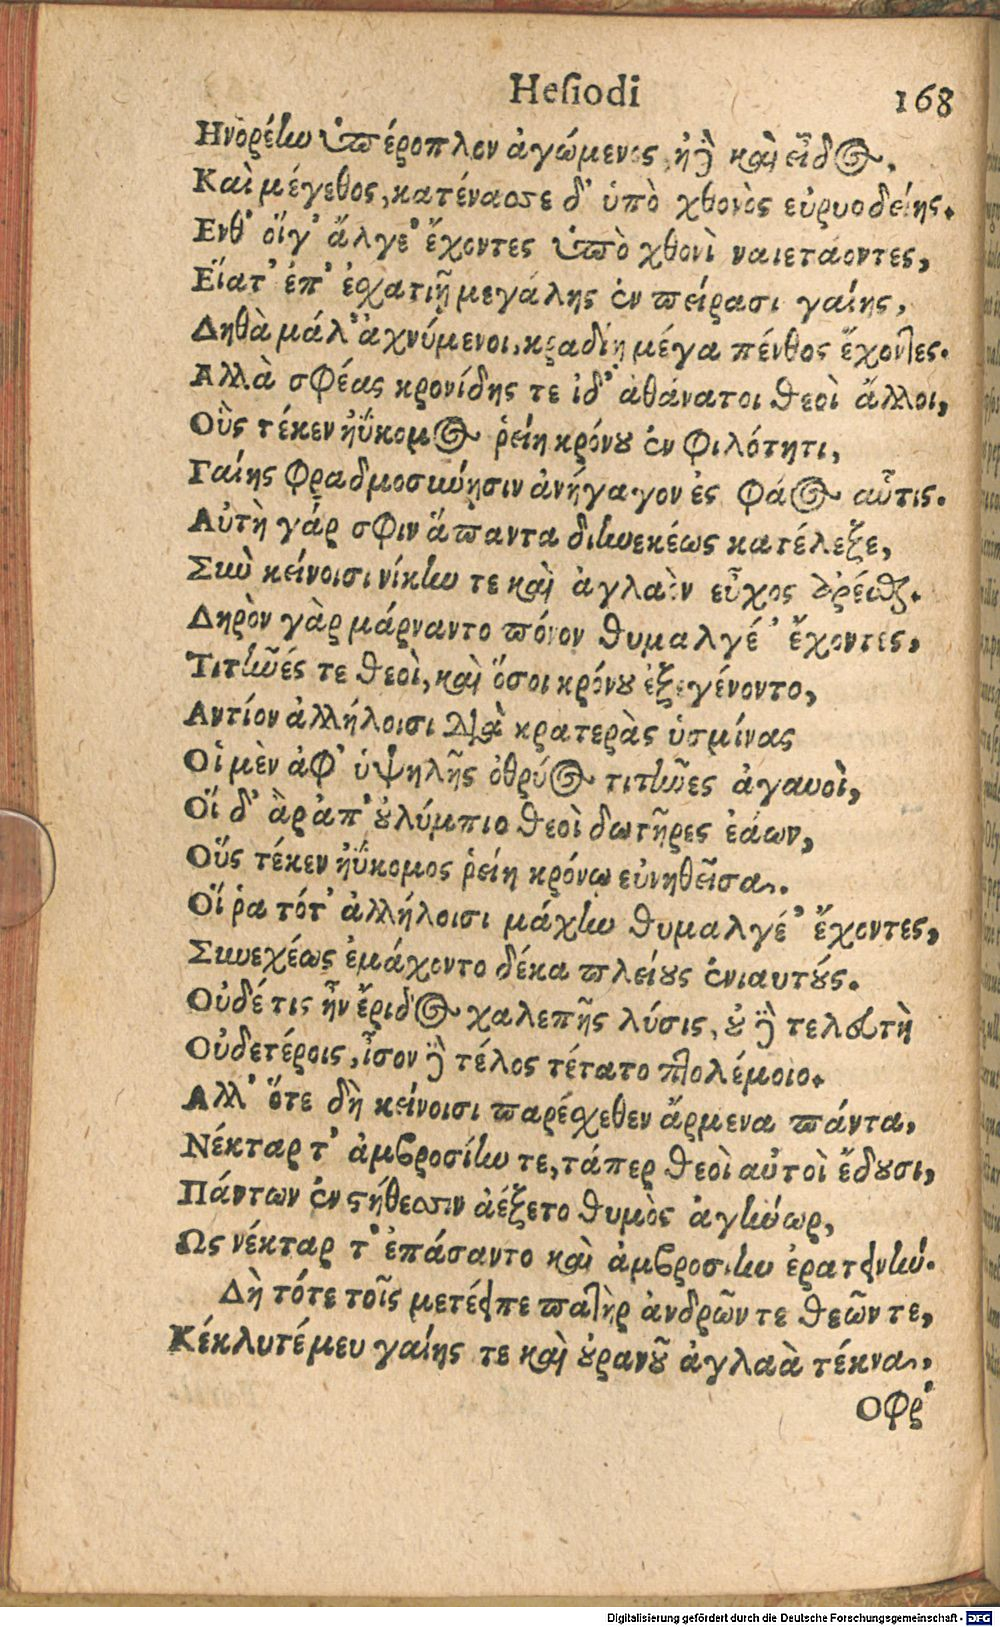 Hesiodi 168
Ηνορέην ὑπέροπλον ἀγώμενος, ἠδὲ καὶ εἶδος,
Καὶ μέγεθος, κατένασσε δ' ὑπὸ χθονὸς εὐρυοδείης.
Ενθ' οἵγ' ἄλγε' ἔχοντες ὑπὸ χθονὶ ναιετάοντες,
Εἵατ' ἐπ' ἐσχατιῇ μεγάλης ἐν πείρασι γαίης,
Δηθὰ μάλ' ἀχνύμενοι, κραδίῃ μέγα πένθος ἔχοντες.
Αλλὰ σφέας κρονίδης τε ἰδ' ἀθάνατοι θεοὶ ἄλλοι,
Οὓς τέκεν ἠΰκομος ῥείη κρόνου ἐν φιλότητι,
Γαίης φραδμοσύνησιν ἀνήγαγον ἐς φάος αὖτις.
Αὐτὴ γάρ σφιν ἅπαντα διηνεκέως κατέλεξε,
Σὺν κείνοισι νίκην τε καὶ ἀγλαὸν εὖχος ἀρέσθαι.
Δηρὸν γὰρ μάρναντο πόνον θυμαλγέ' ἔχοντες,
Τιτῆνές τε θεοὶ, καὶ ὅσοι κρόνου ἐξεγένοντο,
Αντίον ἀλλήλοισι διὰ κρατερὰς ὑσμίνας
Οἱ μὲν ἀφ' ὑψηλῆς ὀθρύος τιτῆνες ἀγαυοὶ,
Οἵ δ' ἂρ ἀπ' οὐλύμπιο θεοὶ δωτῆρες ἐάων,
Οὕς τέκεν ἠΰκομος ῥείη κρόνῳ εὐνηθεῖσα.
Οἵ ρα τότ' ἀλλήλοισι μάχην θυμαλγέ' ἔχοντες,
Συνεχέως ἐμάχοντο δέκα πλείους ἐνιαυτούς.
Οὐδέ τις ἦν ἔριδος χαλεπῆς λύσις, οὐδὲ τελευτὴ
Οὐδετέροις, ἶσον δὲ τέλος τέτατο πτολέμοιο.
Αλλ' ὅτε δὴ κείνοισι παρέσχεθεν ἄρμενα πάντα,
Νέκταρ τ' ἀμβροσίην τε, τάπερ θεοὶ αὐτοὶ ἔδουσι,
Πάντων ἐν στήθεσσιν ἀέξετο θυμὸς ἀγήνωρ,
Ως νέκταρ τ' ἐπάσαντο καὶ ἀμβροσίην ἐρατεινήν.
Δὴ τότε τοῖς μετέειπε πατὴρ ἀνδρῶν τε θεῶν τε,
Κέκλυτέ μευ γαίης τε καὶ οὐρανοῦ ἀγλαὰ τέκνα,
Οφρ'
Digitalisierung gefördert durch die Deutsche Forschungsgemeinschaft - DFG